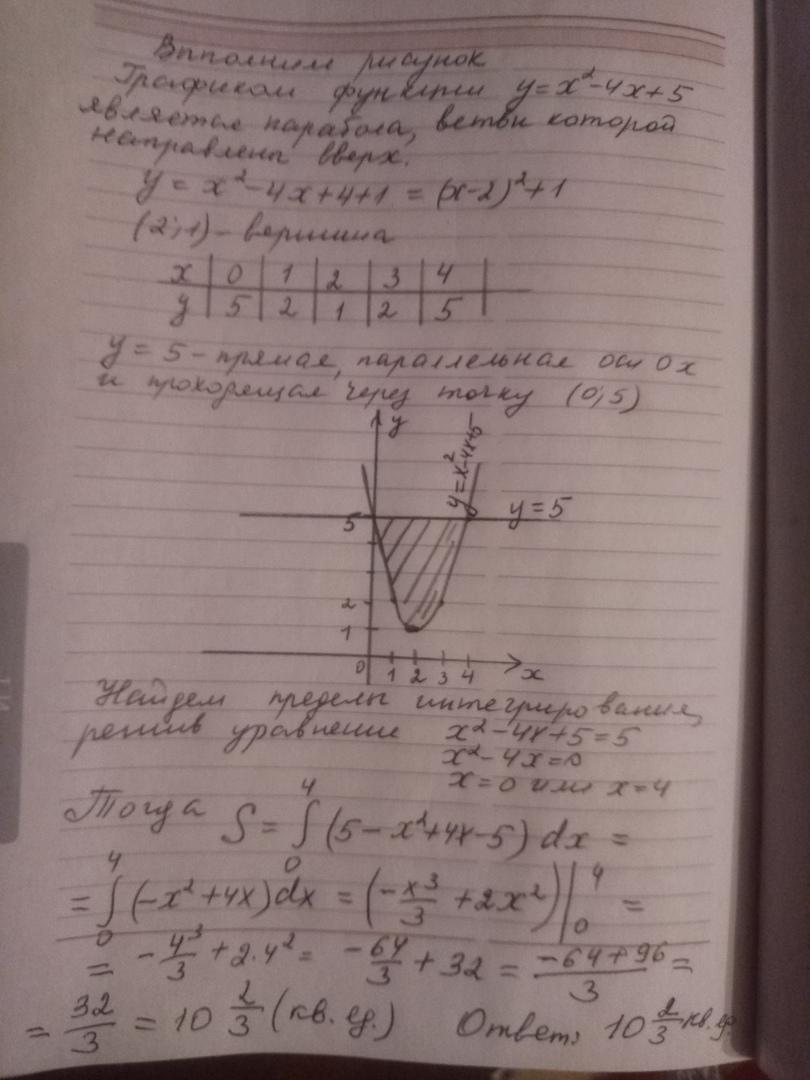 Выполним рисунок
Графиком функции y = x² - 4x + 5
является парабола, ветви которой
направлены вверх.
y = x² - 4x + 4 + 1 = (x-2)² + 1
(2;1) - вершина
x | 0 | 1 | 2 | 3 | 4 |
y | 5 | 2 | 1 | 2 | 5 |
y = 5 - прямая, параллельная оси Ox
и проходящая через точку (0;5)
y
y = x² - 4x + 5
y = 5
5
2
1
0 1 2 3 4 x
Найдем пределы интегрирования,
решив уравнение x² - 4x + 5 = 5
x² - 4x = 0
x = 0 или x = 4
Тогда S = ∫₀⁴ (5 - x² + 4x - 5) dx =
= ∫₀⁴ (-x² + 4x) dx = (-x³/3 + 2x²) |₀⁴ =
= -4³/3 + 2·4² = -64/3 + 32 = (-64 + 96)/3 =
= 32/3 = 10 2/3 (кв. ед.) Ответ: 10 2/3 кв. ед.